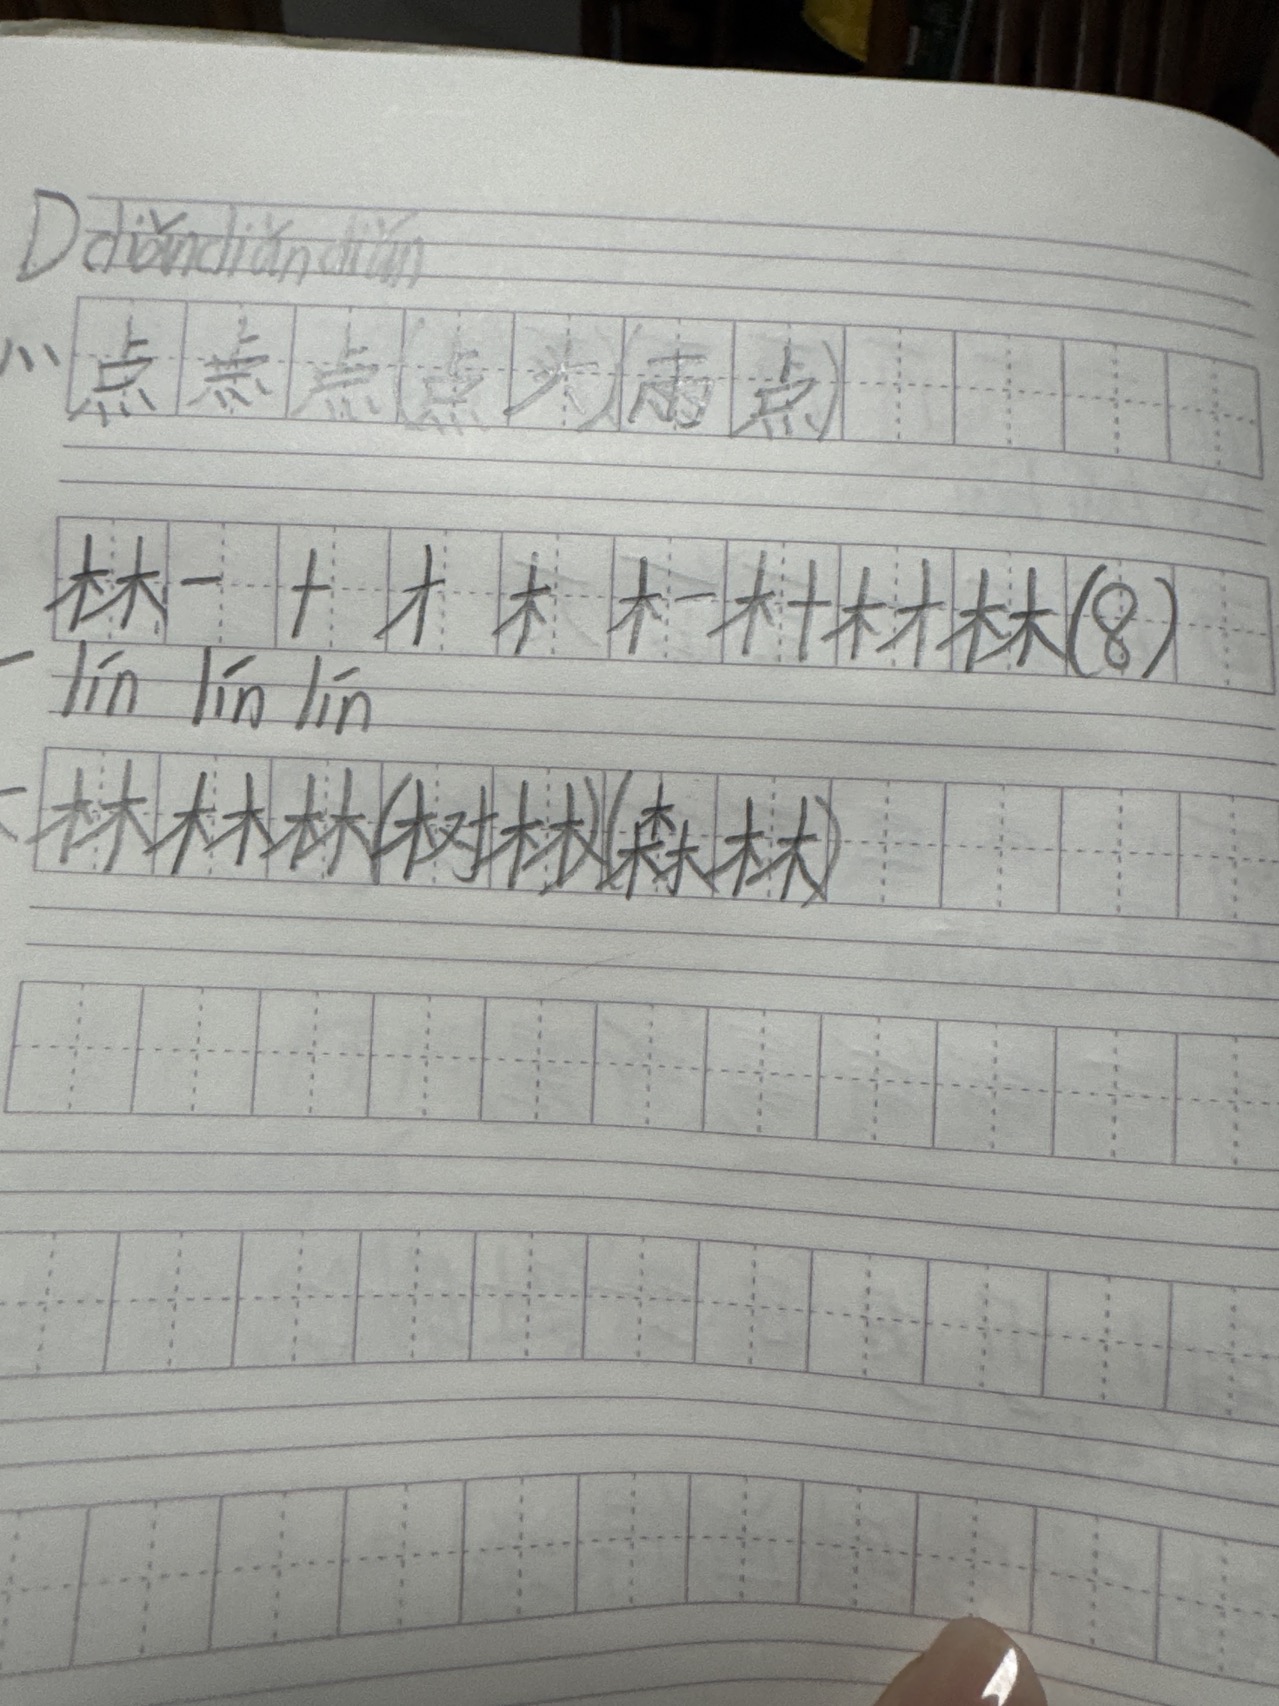 D diǎn diǎn diǎn
点点点(点火)(雨点)
林一十才木木一村材林(8)
lín lín lín
林林林(树林)(森林)